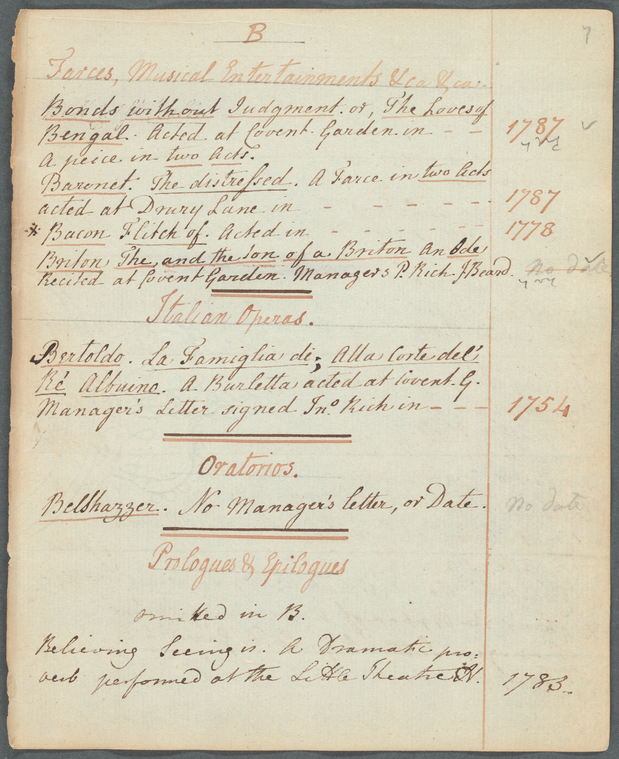 7
B
Farces, Musical Entertainments &ca &ca.
Bonds without Judgment. or, The Loves of
Bengal. Acted at Covent Garden in - - 1787
A peice in two Acts.
Baronet. The distressed. A Farce in two Acts
acted at Drury Lane in - - - - - 1787
* Bacon Flitch of. Acted in - - - - - 1778
Briton, The, and the Son of a Briton An Ode
Recited at Covent Garden. Managers P. Rich J Beard. no date
Italian Operas.
Bertoldo. La Famiglia di; Alla Corte del'
Ré Albuino. A Burletta acted at Covent. G.
Manager's Letter signed Jno Rich in - - - 1754
Oratorios.
Belshazzer. No Manager's letter, or Date. No date
Prologues & Epilogues
omitted in B.
Believing Seeing is. A Dramatic pro:
verb performed at the Little Theatre H. 1783.